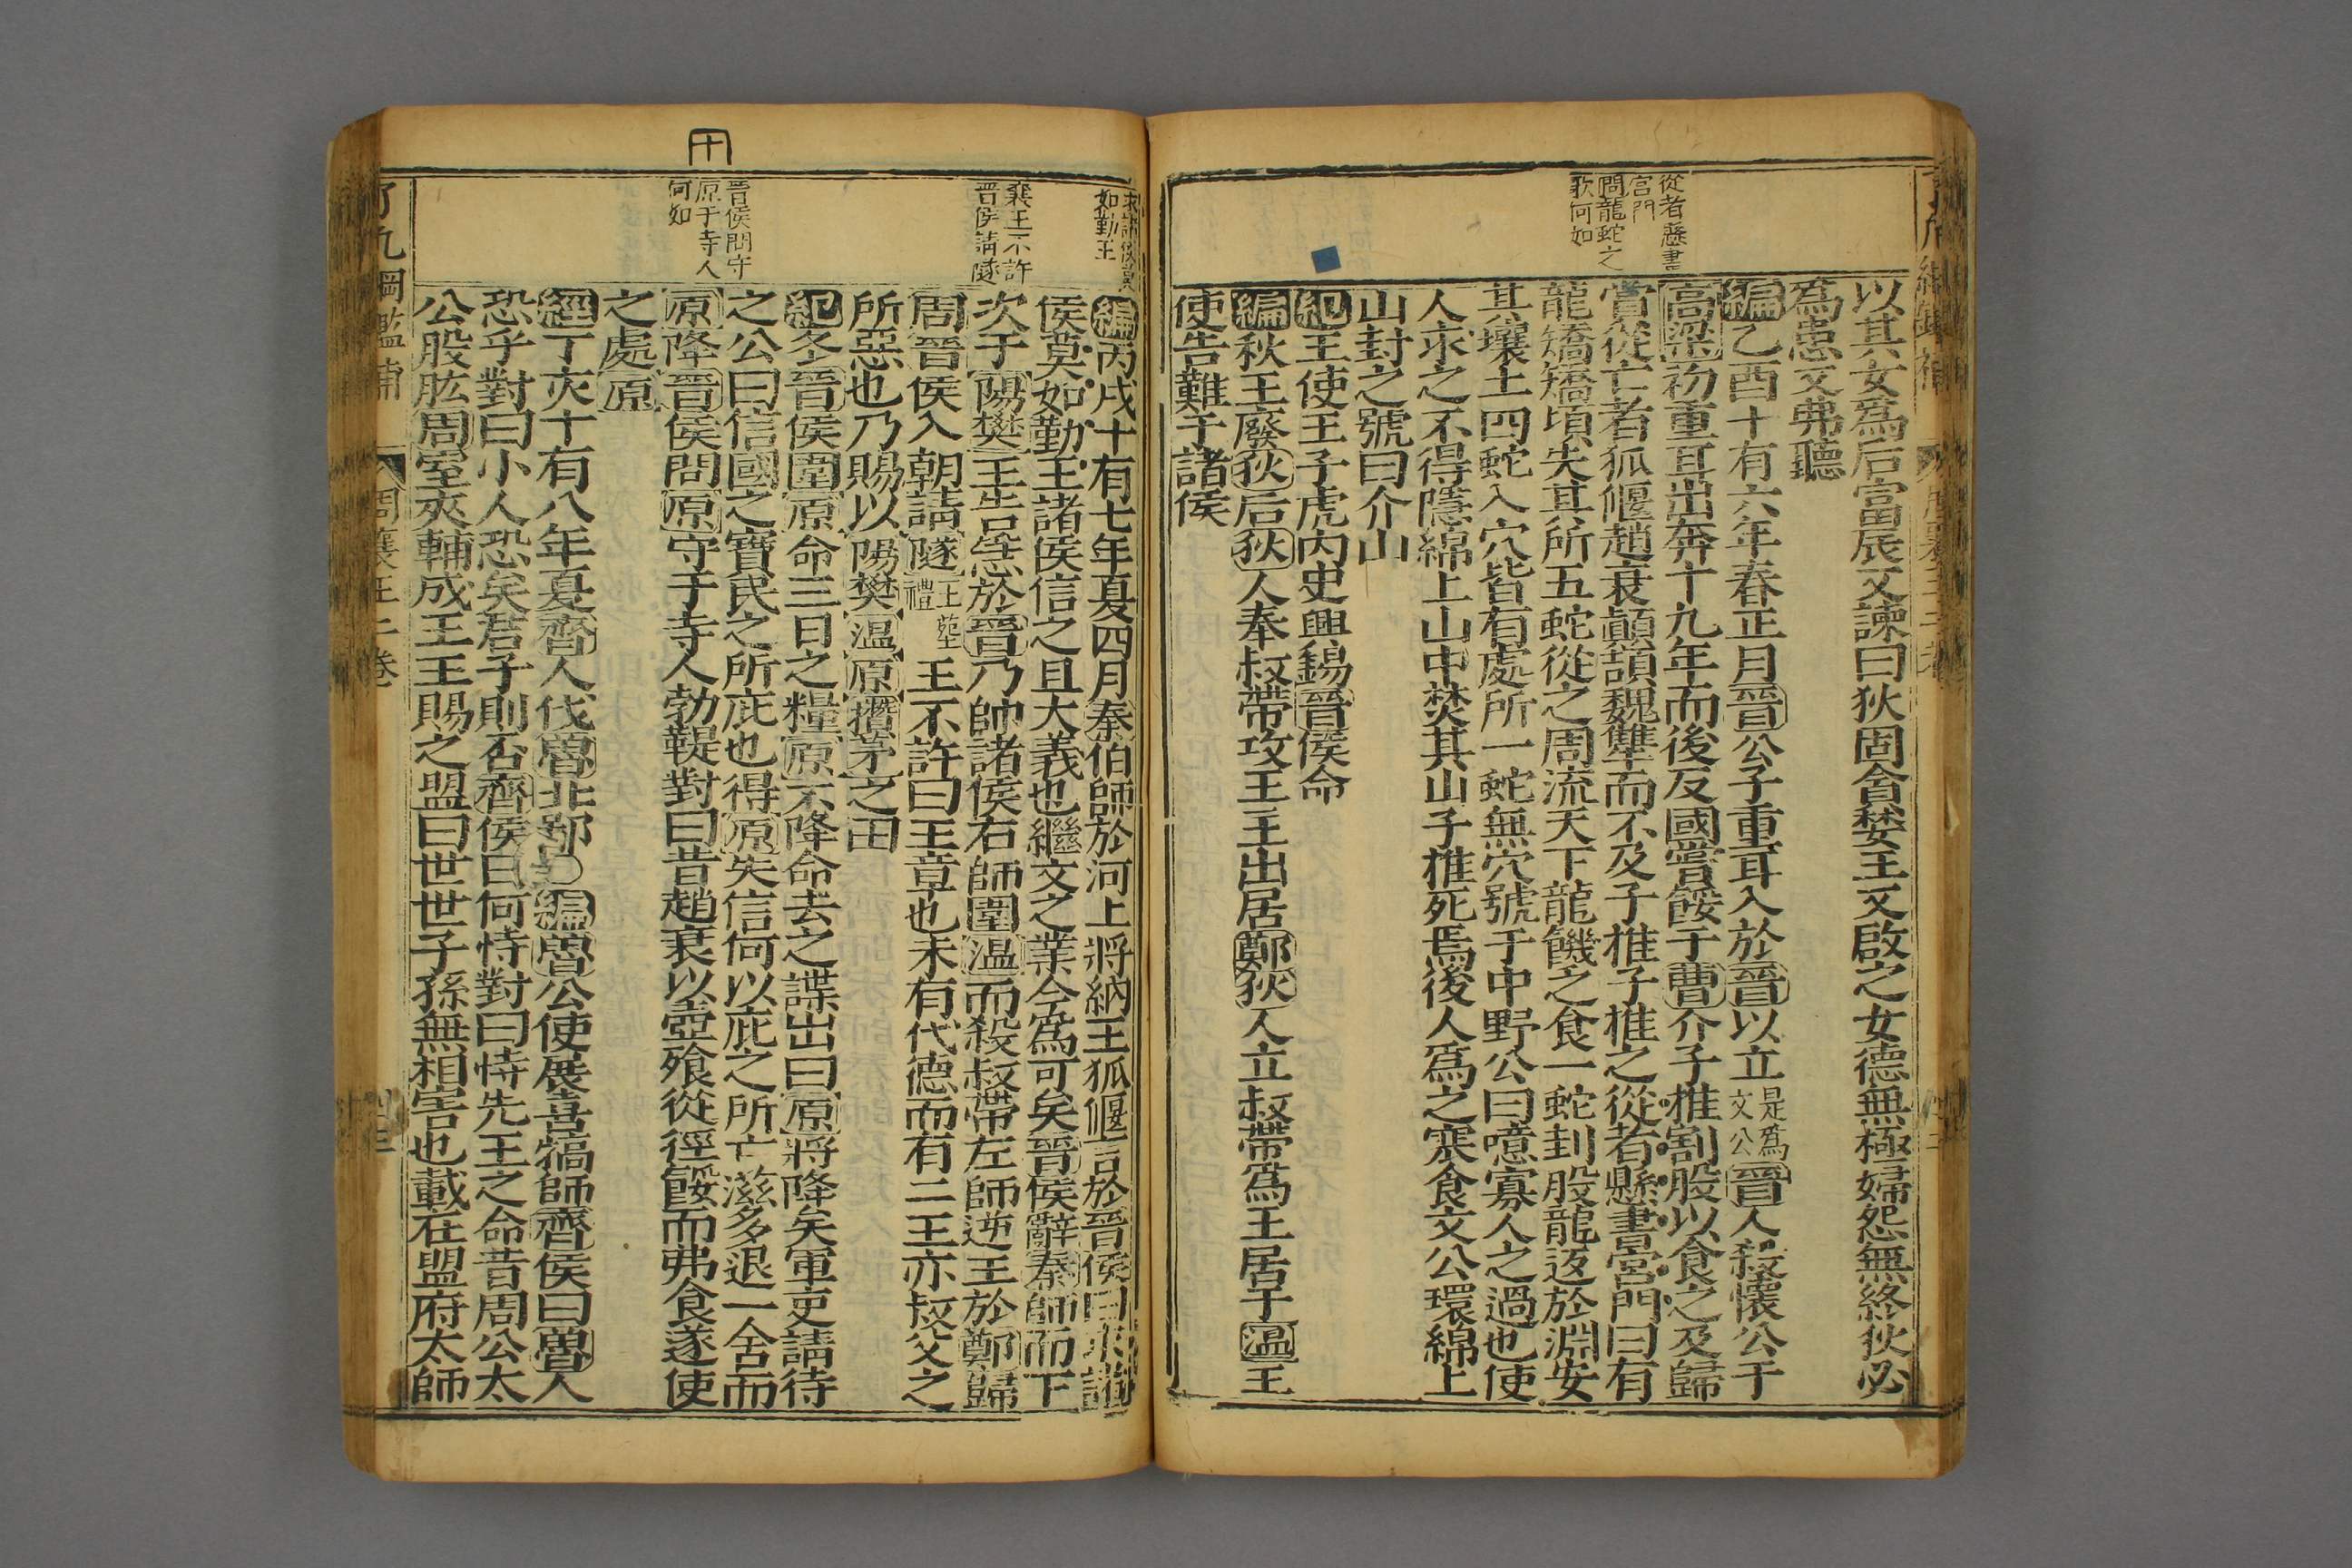 從者懸書
宮門
問龍蛇之
歌何如
以其女為后富辰又諫曰狄固貪婪王又啟之女德無極婦怨無終狄必
為患又弗聽
編乙酉十有六年春正月晉公子重耳入於晉以立是為文公晉人殺懷公于
高梁初重耳出奔十九年而後反國嘗餒于曹介子推割股以食之及歸
賞從亡者狐偃趙衰顛頡魏犨而不及子推子推之從者懸書宮門曰有
龍矯矯頃失其所五蛇從之周流天下龍饑乏食一蛇刲股龍返於淵安
其壤土四蛇入穴皆有處所一蛇無穴號于中野公曰噫寡人之過也使
人求之不得隱綿上山中焚其山子推死焉後人為之寒食文公環綿上
山封之號曰介山
紀王使王子虎內史興錫晉侯命
編秋王廢狄后狄人奉叔帶攻王王出居鄭狄人立叔帶為王居于溫王
使告難于諸侯
求諸侯莫
如勤王
襄王不許
晉侯請隧
晉侯問守
原于寺人
何如
十
編丙戌十有七年夏四月秦伯師於河上將納王狐偃言於晉侯曰求諸
侯莫如勤王諸侯信之且大義也繼文之業今為可矣晉侯辭秦師而下
次于陽樊王告急於晉乃帥諸侯右師圍溫而殺叔帶左師逆王於鄭歸
周晉侯入朝請隧王塟禮王不許曰王章也未有代德而有二王亦叔父之
所惡也乃賜以陽樊溫原攢茅之田
紀冬晉侯圍原命三日之糧原不降命去之諜出曰原將降矣軍吏請待
之公曰信國之寶民之所庇也得原失信何以庇之所亡滋多退一舍而
原降晉侯問原守于寺人勃鞮對曰昔趙衰以壺飱從徑餒而弗食遂使
之處原
經丁亥十有八年夏齊人伐魯北鄙編魯公使展喜犒師齊侯曰魯人
恐乎對曰小人恐矣君子則否齊侯曰何恃對曰恃先王之命昔周公太
公股肱周室夾輔成王王賜之盟曰世世子孫無相害也載在盟府太師
了凡綱鑑補
周襄王二卷